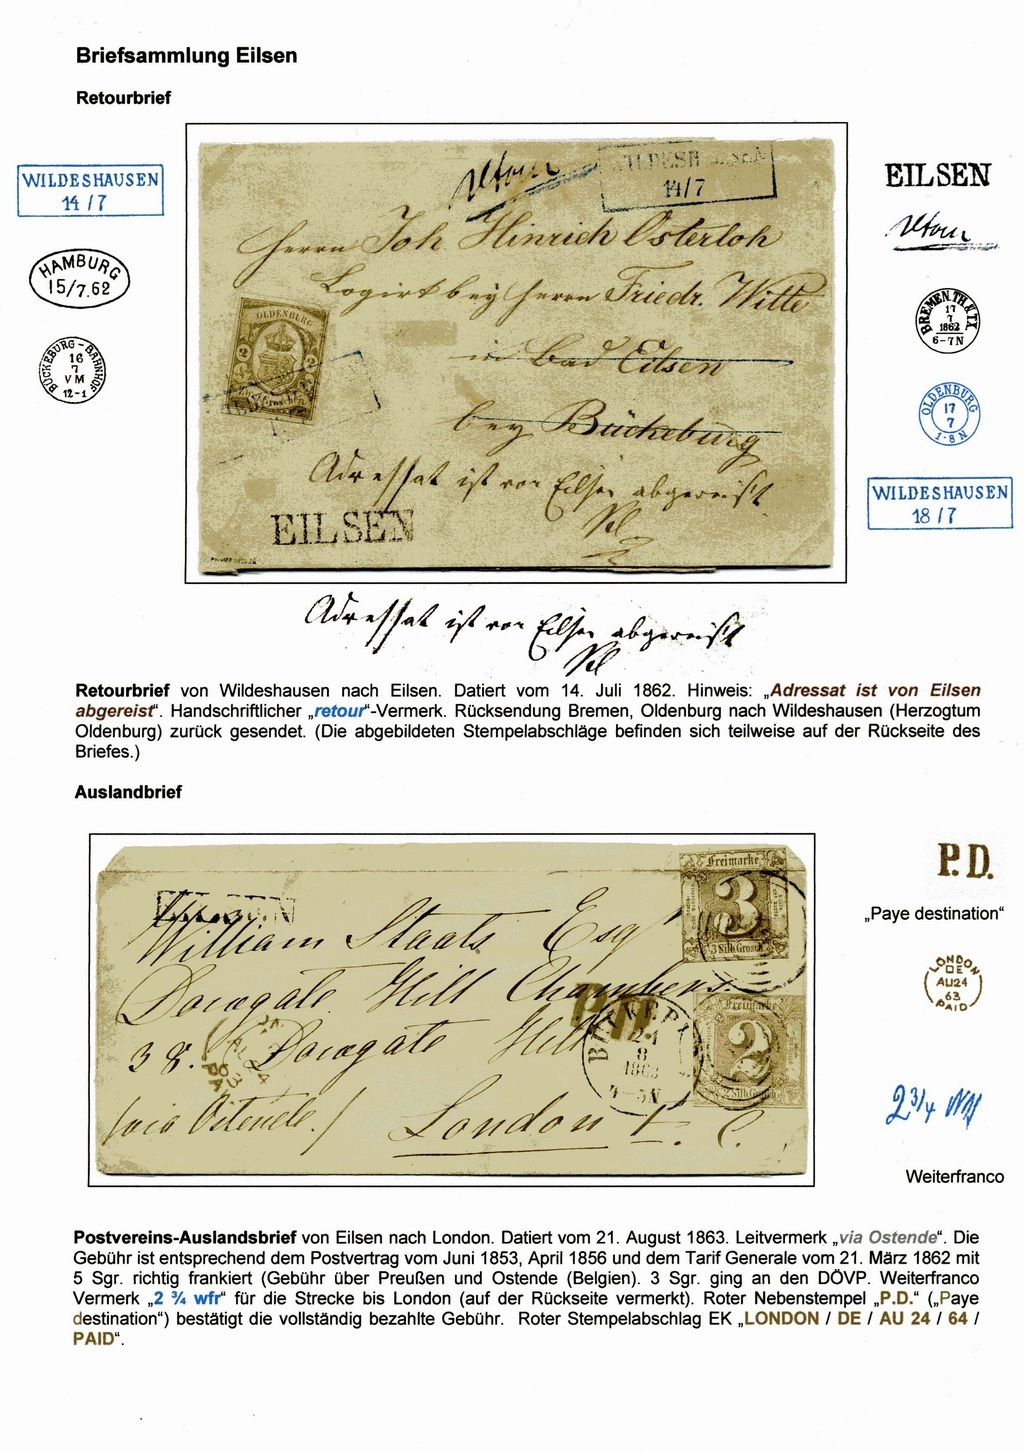 Briefsammlung Eilsen
Retourbrief
WILDESHAUSEN
14 / 7
HAMBURG
15/7.62
BÜCKEBURG - BAHNHOF
16
7
VM
12-1
retour
14/7
Herrn Joh Hinrich Osterloh
Logirt bey Herrn Friedr. Witte
in Bad Eilsen
bey Bückeburg
OLDENBURG
2
2
Adressat ist von Eilsen abgereist
EILSEN
EILSEN
retour
BREMEN.TH&TX
17
7
1862
6-7N
OLDENBURG
17
7
1-8N
WILDESHAUSEN
18 / 7
Adressat ist von Eilsen abgereist
Retourbrief von Wildeshausen nach Eilsen. Datiert vom 14. Juli 1862. Hinweis: „Adressat ist von Eilsen
abgereist“. Handschriftlicher „retour“-Vermerk. Rücksendung Bremen, Oldenburg nach Wildeshausen (Herzogtum
Oldenburg) zurück gesendet. (Die abgebildeten Stempelabschläge befinden sich teilweise auf der Rückseite des
Briefes.)
Auslandbrief
William Staats Esq
Dowgate Hill Chambers
38. Dowgate Hill
/via Ostende./ London E. C.
Freimarke
3
3 Silb. Grosch
P.D.
21
8
1863
4-5N
Freimarke
2
P.D.
„Paye destination“
LONDON
DE
AU24
63
PAID
2 3/4 wfr
Weiterfranco
Postvereins-Auslandsbrief von Eilsen nach London. Datiert vom 21. August 1863. Leitvermerk „via Ostende“. Die
Gebühr ist entsprechend dem Postvertrag vom Juni 1853, April 1856 und dem Tarif Generale vom 21. März 1862 mit
5 Sgr. richtig frankiert (Gebühr über Preußen und Ostende (Belgien). 3 Sgr. ging an den DÖVP. Weiterfranco
Vermerk „2 ¾ wfr“ für die Strecke bis London (auf der Rückseite vermerkt). Roter Nebenstempel „P.D.“ („Paye
destination“) bestätigt die vollständig bezahlte Gebühr. Roter Stempelabschlag EK „LONDON / DE / AU 24 / 64 /
PAID“.